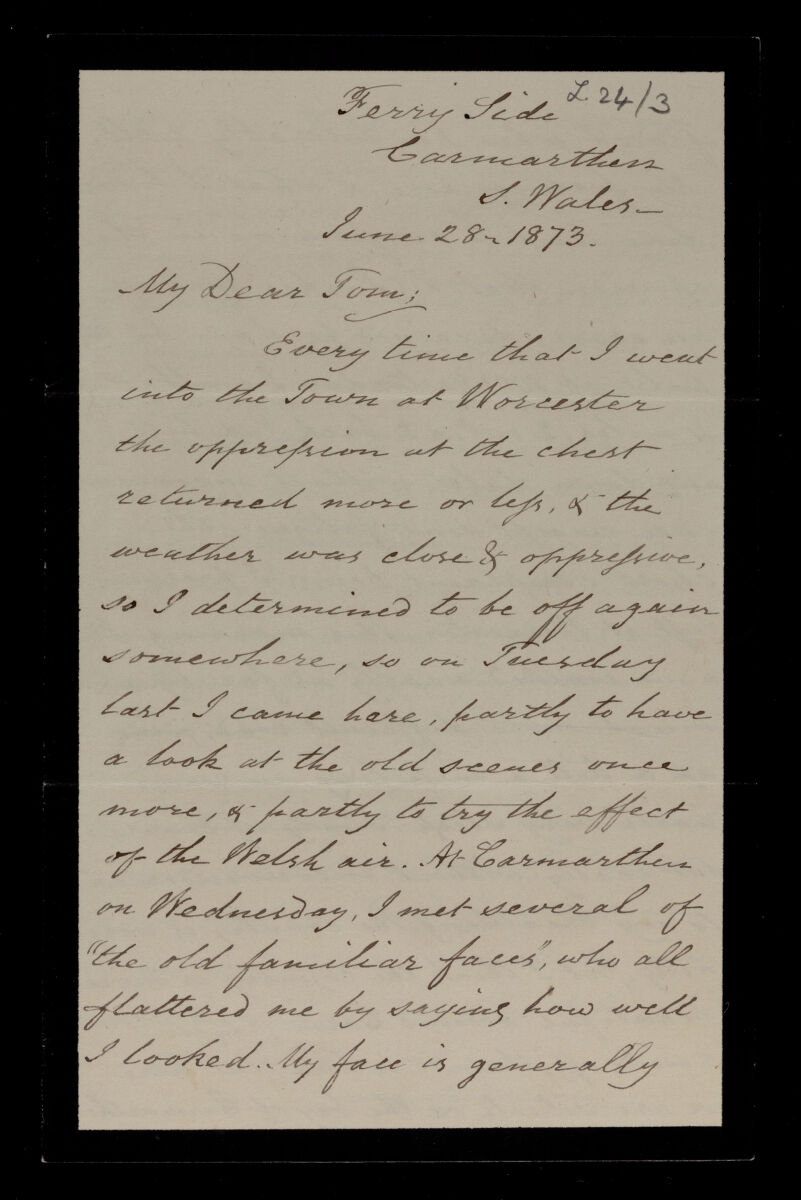 L. 24/3
Ferry Side
Carmarthen
S. Wales—
June 28 - 1873.
My Dear Tom;
Every time that I went
into the Town at Worcester
the oppression at the chest
returned more or less, & the
weather was close & oppressive,
so I determined to be off again
somewhere, so on Tuesday
last I came here, partly to have
a look at the old scenes once
more, & partly to try the effect
of the Welsh air. At Carmarthen
on Wednesday, I met several of
"the old familiar faces", who all
flattered me by saying how well
I looked. My face is generally